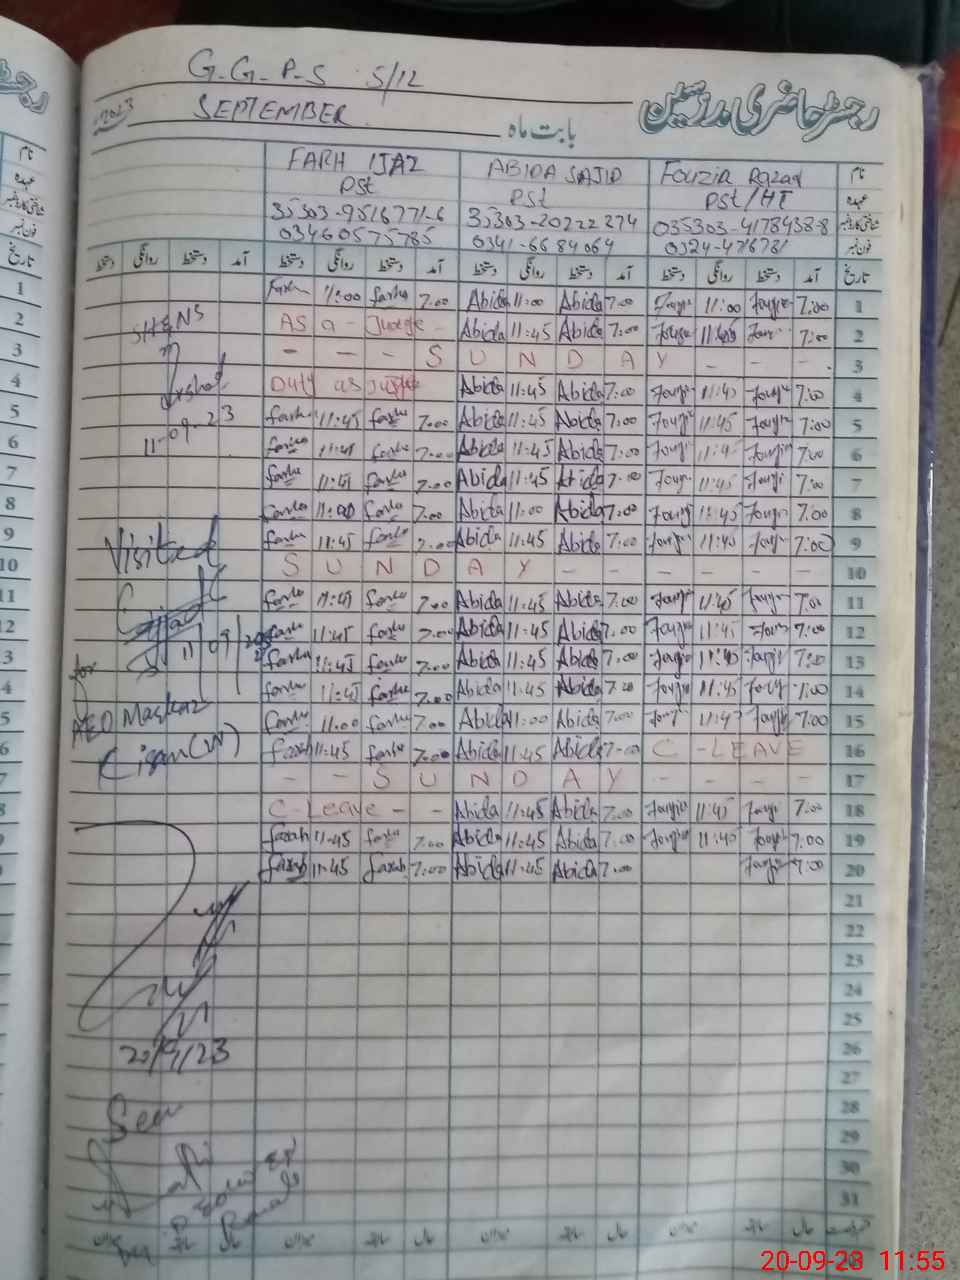 G.G.P.S 5/12
رجسٹر حاضری مدرسین
2023 SEPTEMBER بابت ماہ
FARH IJAZ ABIDA SAJID Fouzia Razaq نام
PST PST PST/HT عہدہ
35303-9516771-6 35303-20222274 035303-4178438-8
03460575785 0341-6684064 0324-4716781 فون نمبر
دستخط روانگی دستخط آمد دستخط روانگی دستخط آمد دستخط روانگی دستخط آمد دستخط روانگی دستخط آمد تاریخ
1 Farha 11:00 farha 7:00 Abida 11:00 Abida 7:00 Fouzia 11:00 Fouzia 7:00 1
2 AS a - Judge - Abida 11:45 Abida 7:00 Fouzia 11:45 Fouzia 7:00 2
3 - - - S U N D A Y - - 3
4 Duty as Judge Abida 11:45 Abida 7:00 Fouzia 11:45 Fouzia 7:00 4
5 farha 11:45 farha 7:00 Abida 11:45 Abida 7:00 Fouzia 11:45 Fouzia 7:00 5
6 farha 11:45 farha 7:00 Abida 11:45 Abida 7:00 Fouzia 11:45 Fouzia 7:00 6
7 farha 11:45 farha 7:00 Abida 11:45 Abida 7:00 Fouzia 11:45 Fouzia 7:00 7
8 farha 11:00 farha 7:00 Abida 11:00 Abida 7:00 Fouzia 11:45 Fouzia 7:00 8
9 farha 11:45 farha 7:00 Abida 11:45 Abida 7:00 Fouzia 11:45 Fouzia 7:00 9
10 S U N D A Y - - - - - - 10
11 farha 11:45 farha 7:00 Abida 11:45 Abida 7:00 Fouzia 11:45 Fouzia 7:00 11
12 farha 11:45 farha 7:00 Abida 11:45 Abida 7:00 Fouzia 11:45 Fouzia 7:00 12
3 farha 11:45 farha 7:00 Abida 11:45 Abida 7:00 Fouzia 11:45 Fouzia 7:00 13
4 farha 11:45 farha 7:00 Abida 11:45 Abida 7:00 Fouzia 11:45 Fouzia 7:00 14
5 farha 11:00 farha 7:00 Abida 11:00 Abida 7:00 Fouzia 11:45 Fouzia 7:00 15
6 farah 11:45 farha 7:00 Abida 11:45 Abida 7:00 C-LEAVE 16
7 - - S U N D A Y - - - 17
8 C-Leave - - Abida 11:45 Abida 7:00 Fouzia 11:45 Fouzia 7:00 18
farah 11:45 farha 7:00 Abida 11:45 Abida 7:00 Fouzia 11:45 Fouzia 7:00 19
farah 11:45 farah 7:00 Abida 11:45 Abida 7:00 Fouzia 7:00 20
21
22
23
24
25
26
27
28
29
30
31
SH&NS
Arshad
11-09-23
Visited
11/09/2023
for
AEO Markaz
20/9/23
Seen
20-09-23 11:55